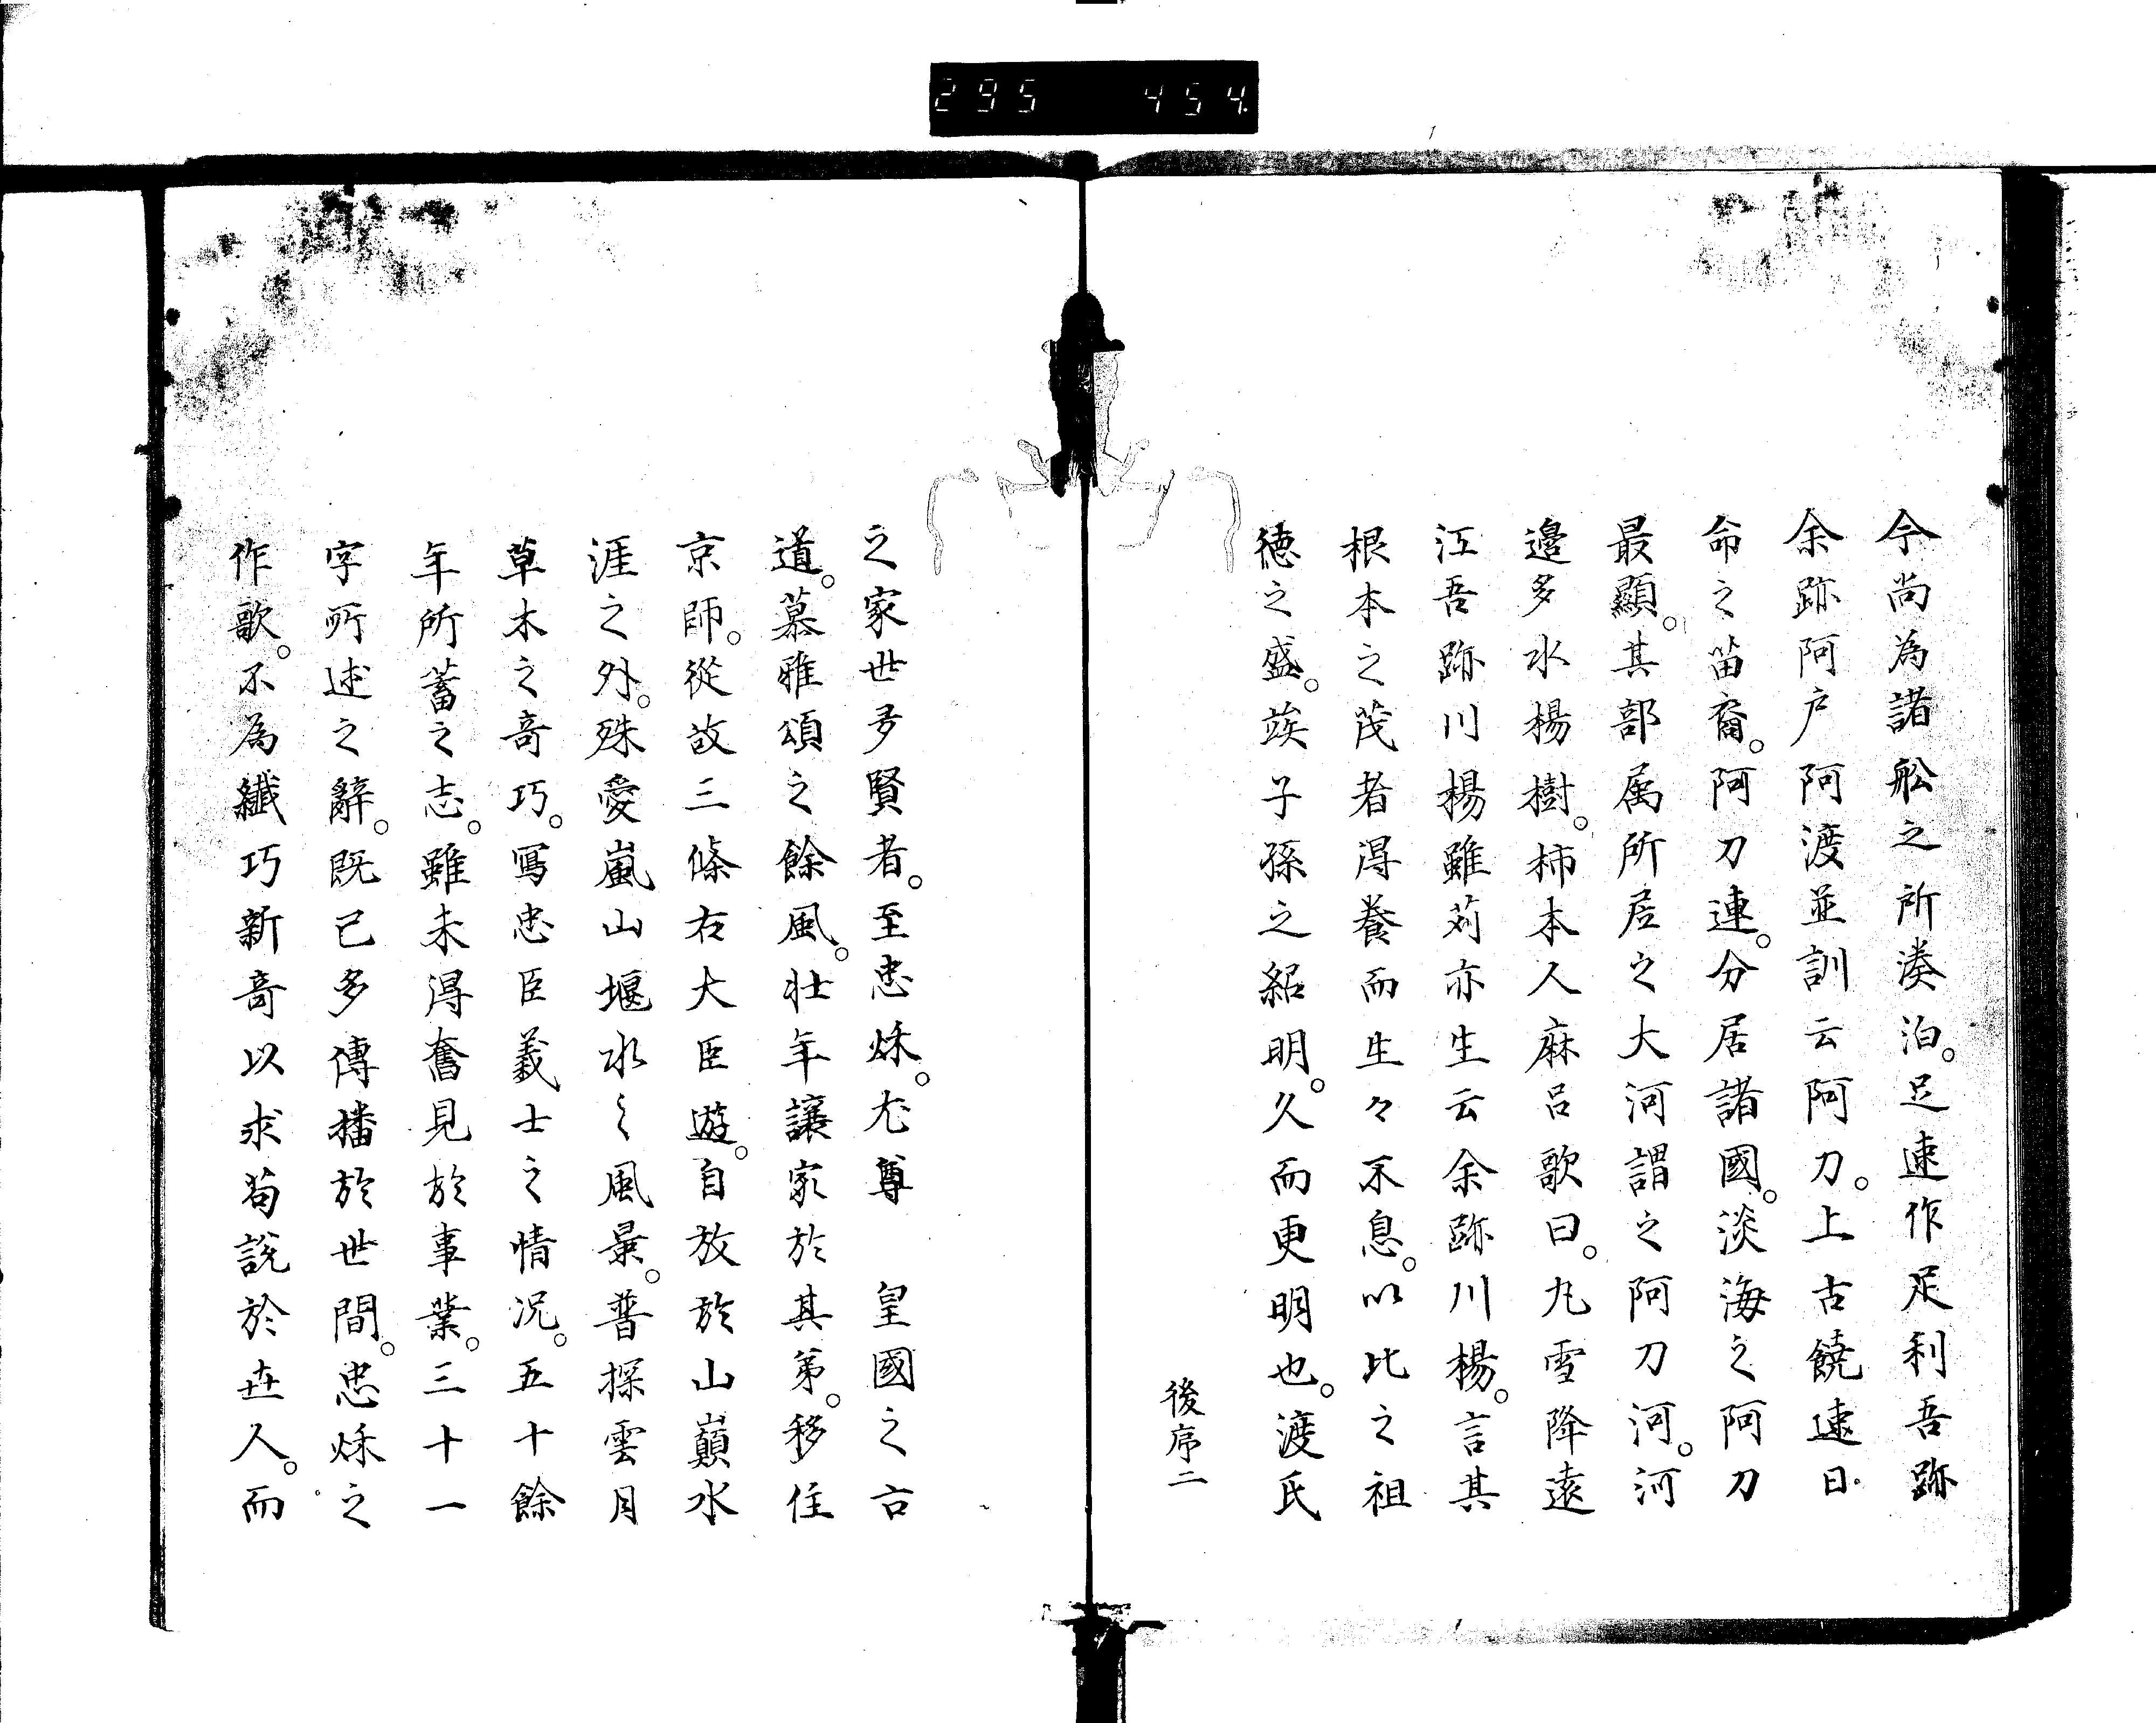 295 454.
今尚為諸舩之所湊泊。足速作足利吾跡
余跡阿戸阿渡並訓云阿刀。上古饒速日
命之苗裔。阿刀連。分居諸國。淡海之阿刀
最顯。其部属所居之大河謂之阿刀河。河
邉多水楊樹。柿本人麻呂歌曰。丸雪降遠
江吾跡川楊雖苅亦生云余跡川楊。言其
根本之茂者得養而生々不息。以比之祖
徳之盛。蓯子孫之紹明。久而更明也。渡氏
後序二
之家世多賢者。至忠秌。尤尊　皇國之古
道。慕雅頌之餘風。壮年譲家於其第。移住
京師。從故三條右大臣遊。自放於山巓水
涯之外。殊愛嵐山堰水之風景。普探雲月
草木之竒巧。寫忠臣義士之情况。五十餘
年所蓄之志。雖未得奮見於事業。三十一
字所述之辭。既已多傳播於世間。忠秌之
作歌。不為纎巧新竒以求苟説於世人。而